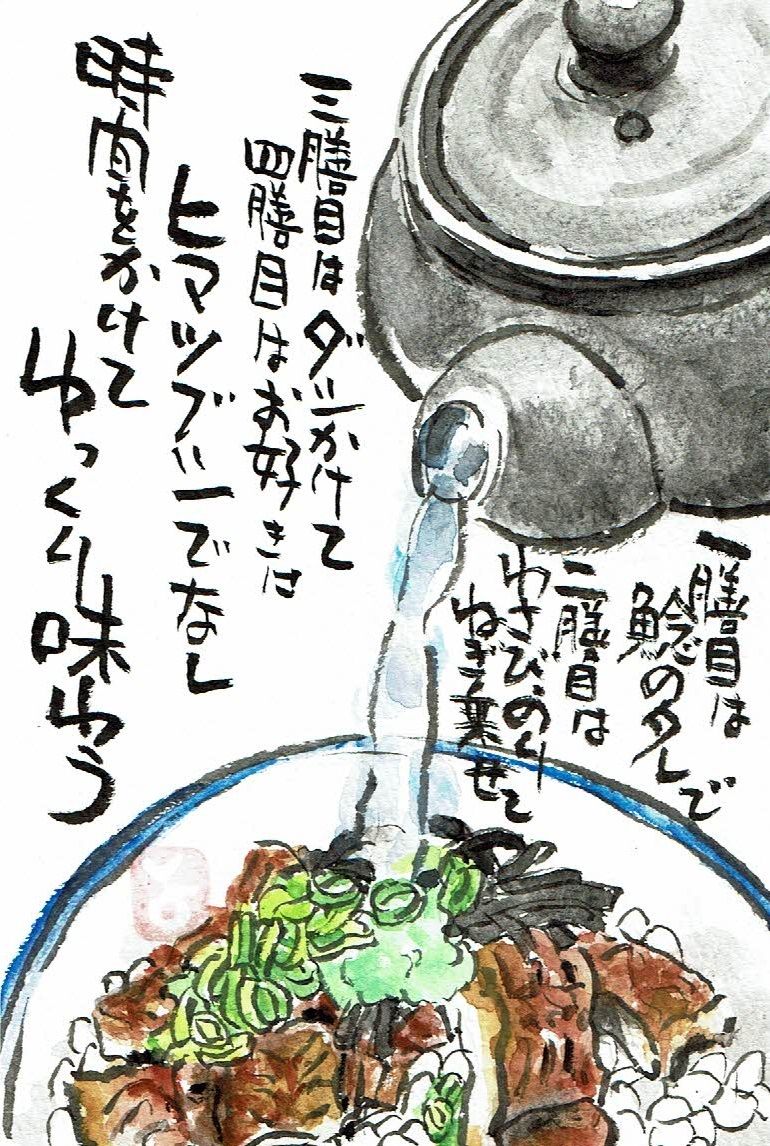 一膳目は
鯰のタレで
二膳目は
わさびのり
ねぎ乗せて
三膳目はダシかけて
四膳目はお好きに
ヒマツブシでなし
時間をかけて
ゆっくり味わう